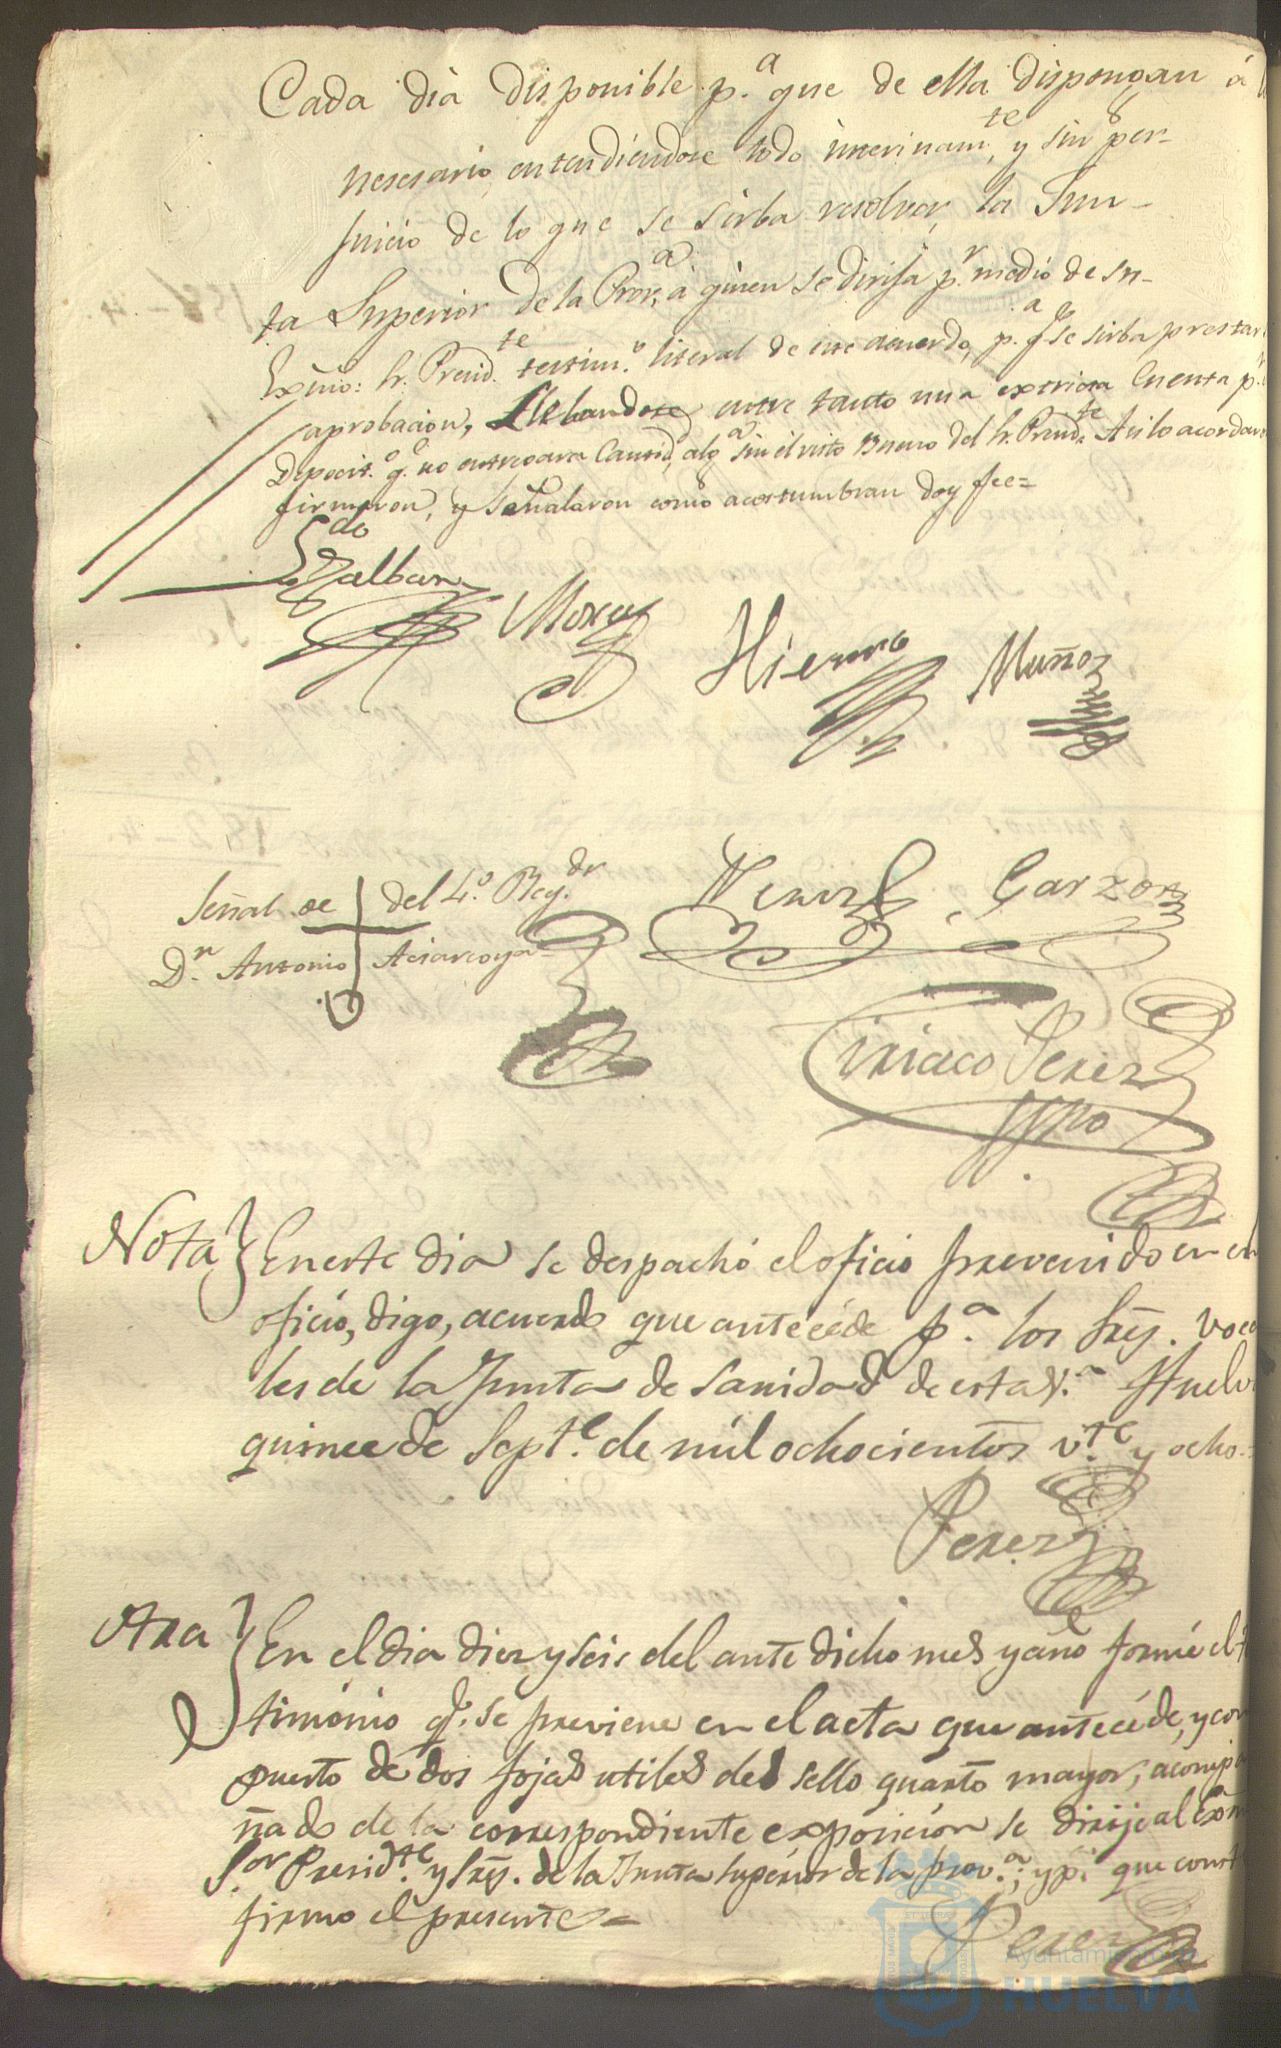 Cada dia disponible p.ª que de ella dispongan á
nesesario, entendiendose todo interinam.te, y sin per-
juicio de lo que se sirba resolver, la Jun-
ta Superior de la Prov.ª, á quien se dirija p.r medio de su
Exmo: Sr. Presid.te testim.º literal de este acuerdo, p.ª q.e se sirba prestar
aprobacion, llebandose entre tanto una extricta Cuenta p.r
Deposit.º q.e no entregara Cantid.d alg.ª sin el visto Bueno del Sr. Presid.te Asi lo acordaron
firmaron, y señalaron como acostumbran doy fee=
Ldo
Galban
Mora
Hierro
Muñoz
Señal de del 4.º Reg.dr
D.n Antonio
Garzon
Ciriaco Perez
Nota} En este dia se despachó el oficio prevenido en el
oficio, digo, acuerdo que antecéde p.ª los Sres. Voca
les de la Junta de Sanidad de esta V.ª Huelva
quince de Sept.e de mil ochocientos v.te y ocho.=
Perez
Otra} En el dia diez y seis del ante dicho mes y año formé el tes
timónio q.e se previene en el acta que antecéde, y com
puesto de dos fojas utiles del sello quarto mayor, acompa
ñado de la correspondiente exposicion se dirije al Exmo
S.or Presid.te y Sres. de la Junta Superior de la prov.ª; y p.ª que conste
firmo el presente=
Perez
Ayuntamiento
HUELVA